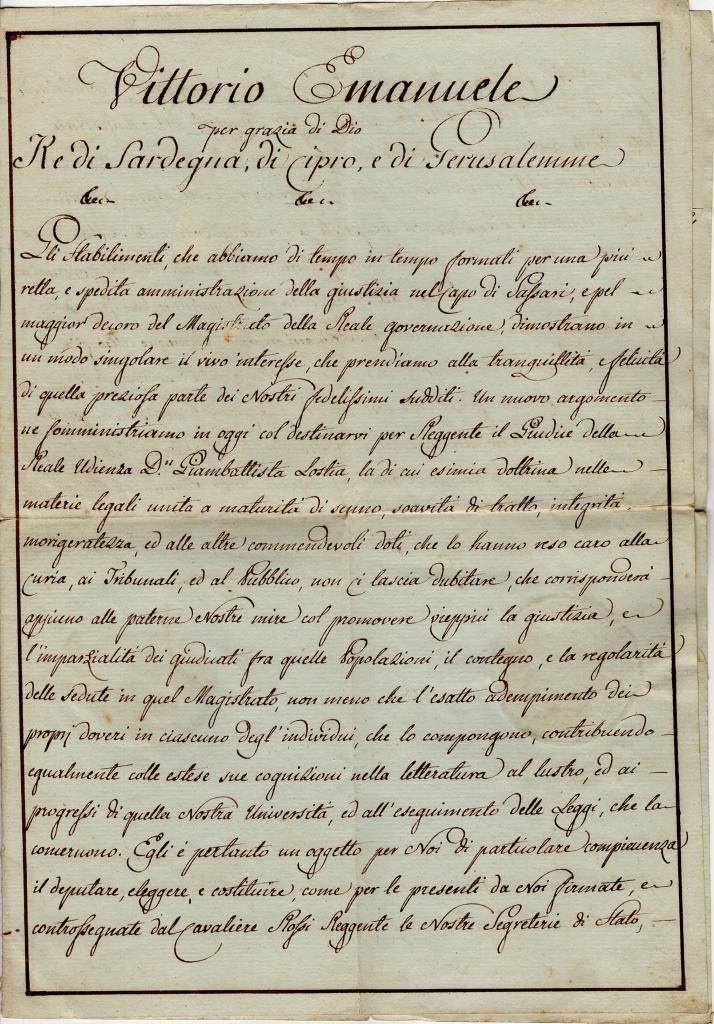 Vittorio Emanuele
per grazia di Dio
Re di Sardegna, di Cipro, e di Gerusalemme
&ec.- &ec.- &ec.-
Gli Stabilimenti, che abbiamo di tempo in tempo formati per una più
retta, e spedita amministrazione della giustizia nel Capo di Sassari, e pel
maggior decoro del Magistrato della Reale governazione, dimostrano in
un modo singolare il vivo interesse, che prendiamo alla tranquillità, e felicità
di quella preziosa parte dei Nostri fedelissimi sudditi. Un nuovo argomento
ne somministriamo in oggi col destinarvi per Reggente il Giudice della
Reale Udienza D.n Giambattista Lostia, la di cui esimia dottrina nelle
materie legali unita a maturità di senno, soavità di tratto, integrità,
morigeratezza, ed alle altre commendevoli doti, che lo hanno reso caro alla
curia, ai Tribunali, ed al Pubblico, non ci lascia dubitare, che corrisponderà
appieno alle paterne Nostre mire col promovere vieppiù la giustizia, e
l'imparzialità dei giudicati fra quelle Popolazioni, il contegno, e la regolarità
delle sedute in quel Magistrato, non meno che l'esatto adempimento dei
proprj doveri in ciascuno degl'individui, che lo compongono, contribuendo
egualmente colle estese sue cognizioni nella letteratura al lustro, ed ai
progressi di quella Nostra Università, ed all'eseguimento delle Leggi, che la
concernono. Egli è pertanto un oggetto per Noi di particolare compiacenza
il deputare, eleggere, e costituire, come per le presenti da Noi firmate, e
controssegnate dal Cavaliere Rossi Reggente le Nostre Segreterie di Stato,